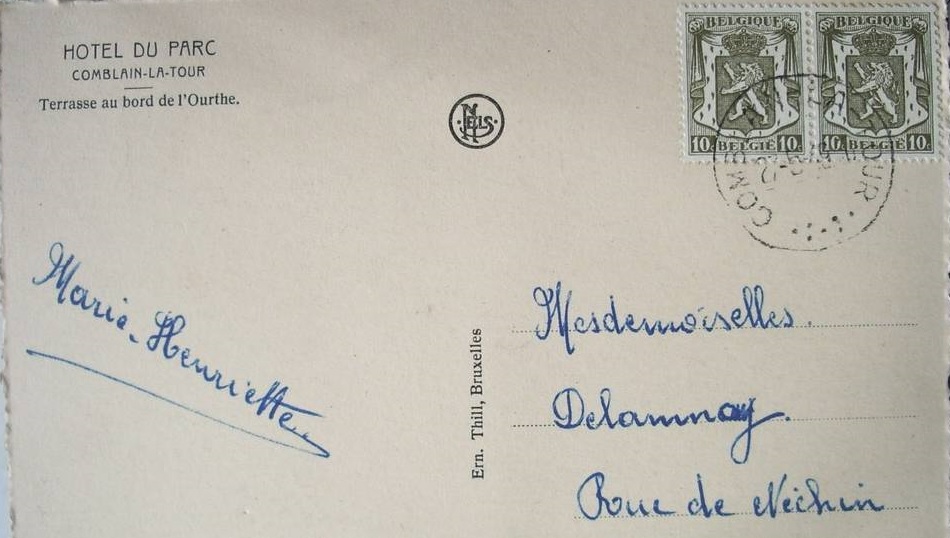 HOTEL DU PARC
COMBLAIN-LA-TOUR
Terrasse au bord de l'Ourthe.
NELS
BELGIQUE
10 BELGIË 10
BELGIQUE
10 BELGIË 10
Marie-Henriette
Ern. Thill, Bruxelles
Mesdemoiselles
Delannay
Rue de Néchin